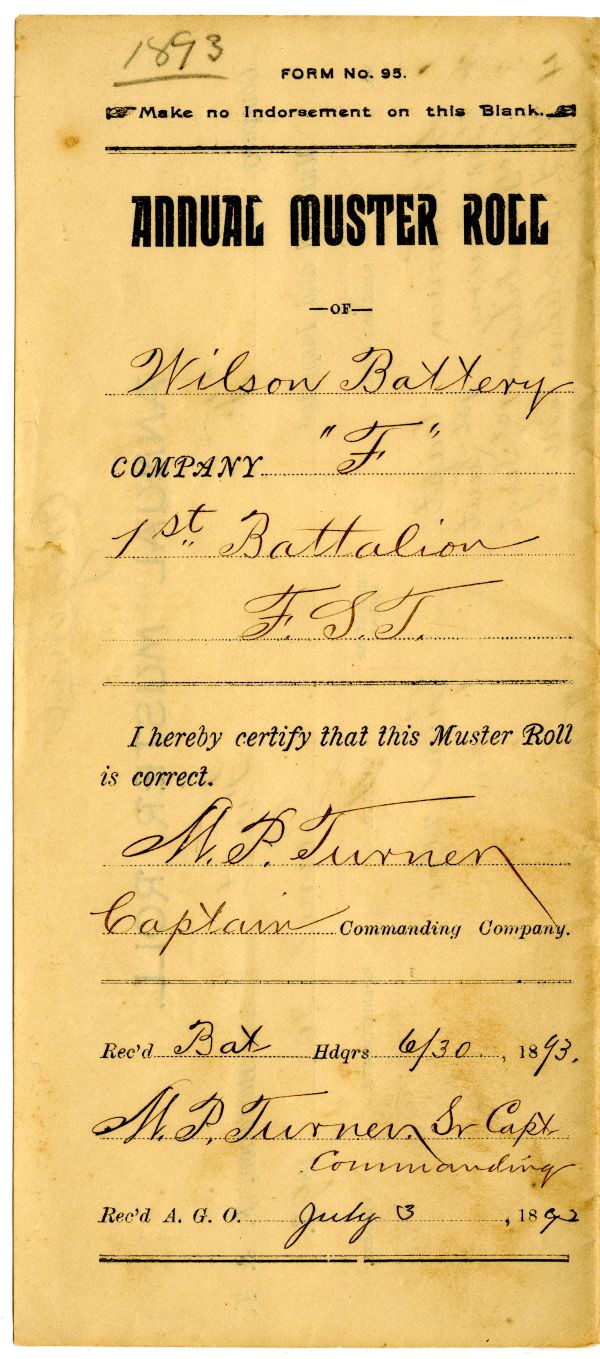 1893
FORM No. 95.
Make no Indorsement on this Blank.
ANNUAL MUSTER ROLL
—OF—
Wilson Battery
COMPANY "F"
1st Battalion
F. S. T.
I hereby certify that this Muster Roll
is correct.
M. P. Turner
Captain Commanding Company.
Rec'd Bat Hdqrs 6/30, 1893.
M. P. Turner Sr Capt
Commanding
Rec'd A. G. O. July 3, 1892